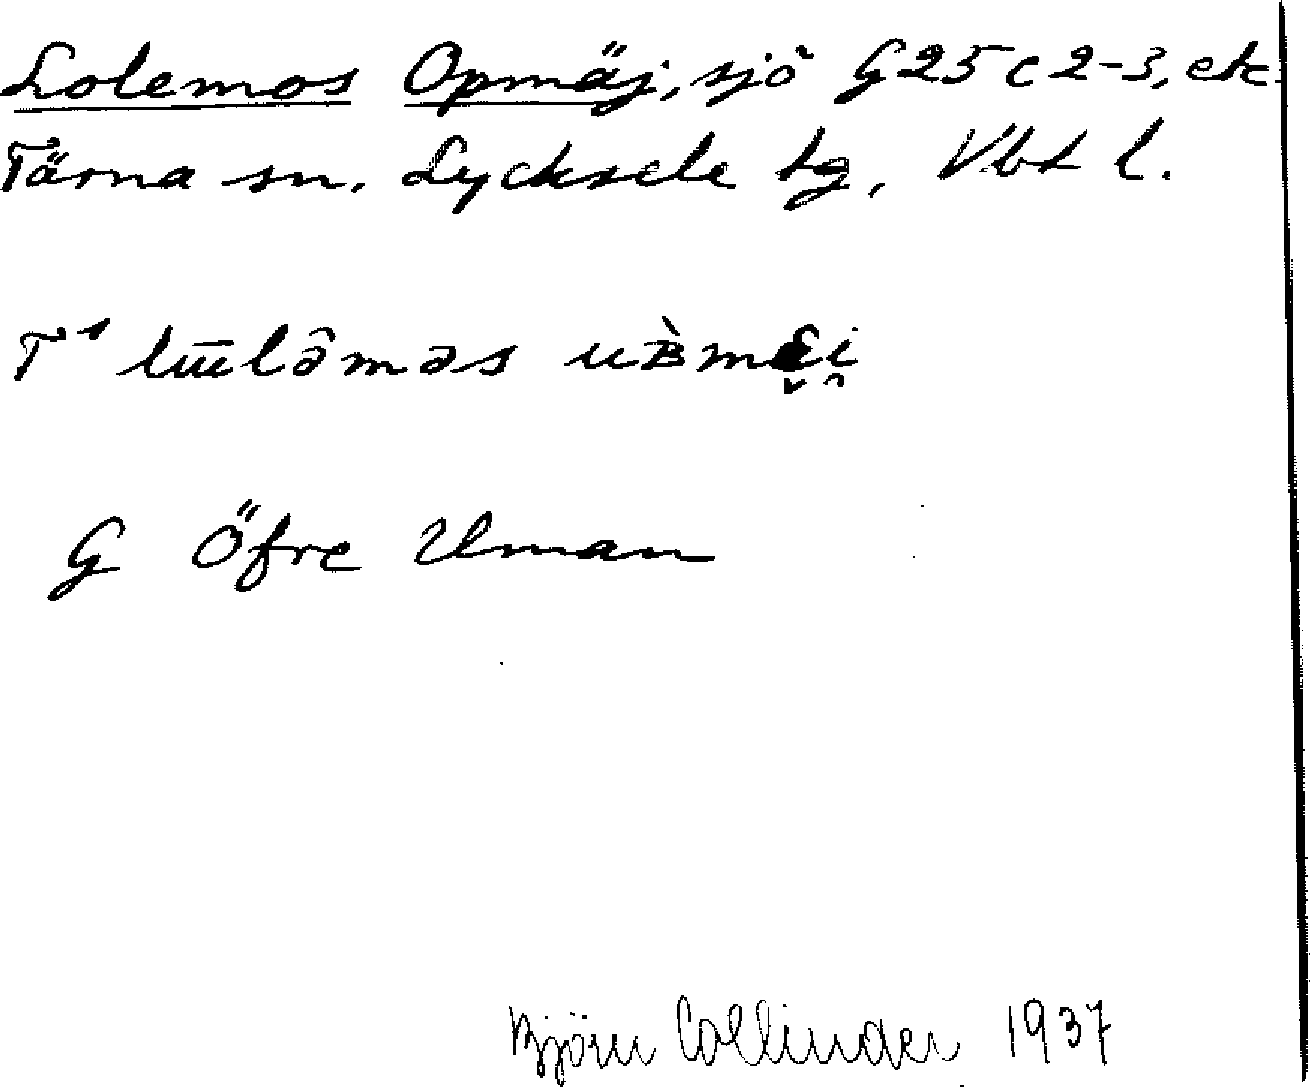 Lolemos Opmäj, sjö G25 c 2-3, ek.
Tärna sn. Lycksele tg, Vbt l.
T¹ lūēlɘ̂mɘs uʙ̀mɛi
G Öfre Uman
Björn Collinder 1937